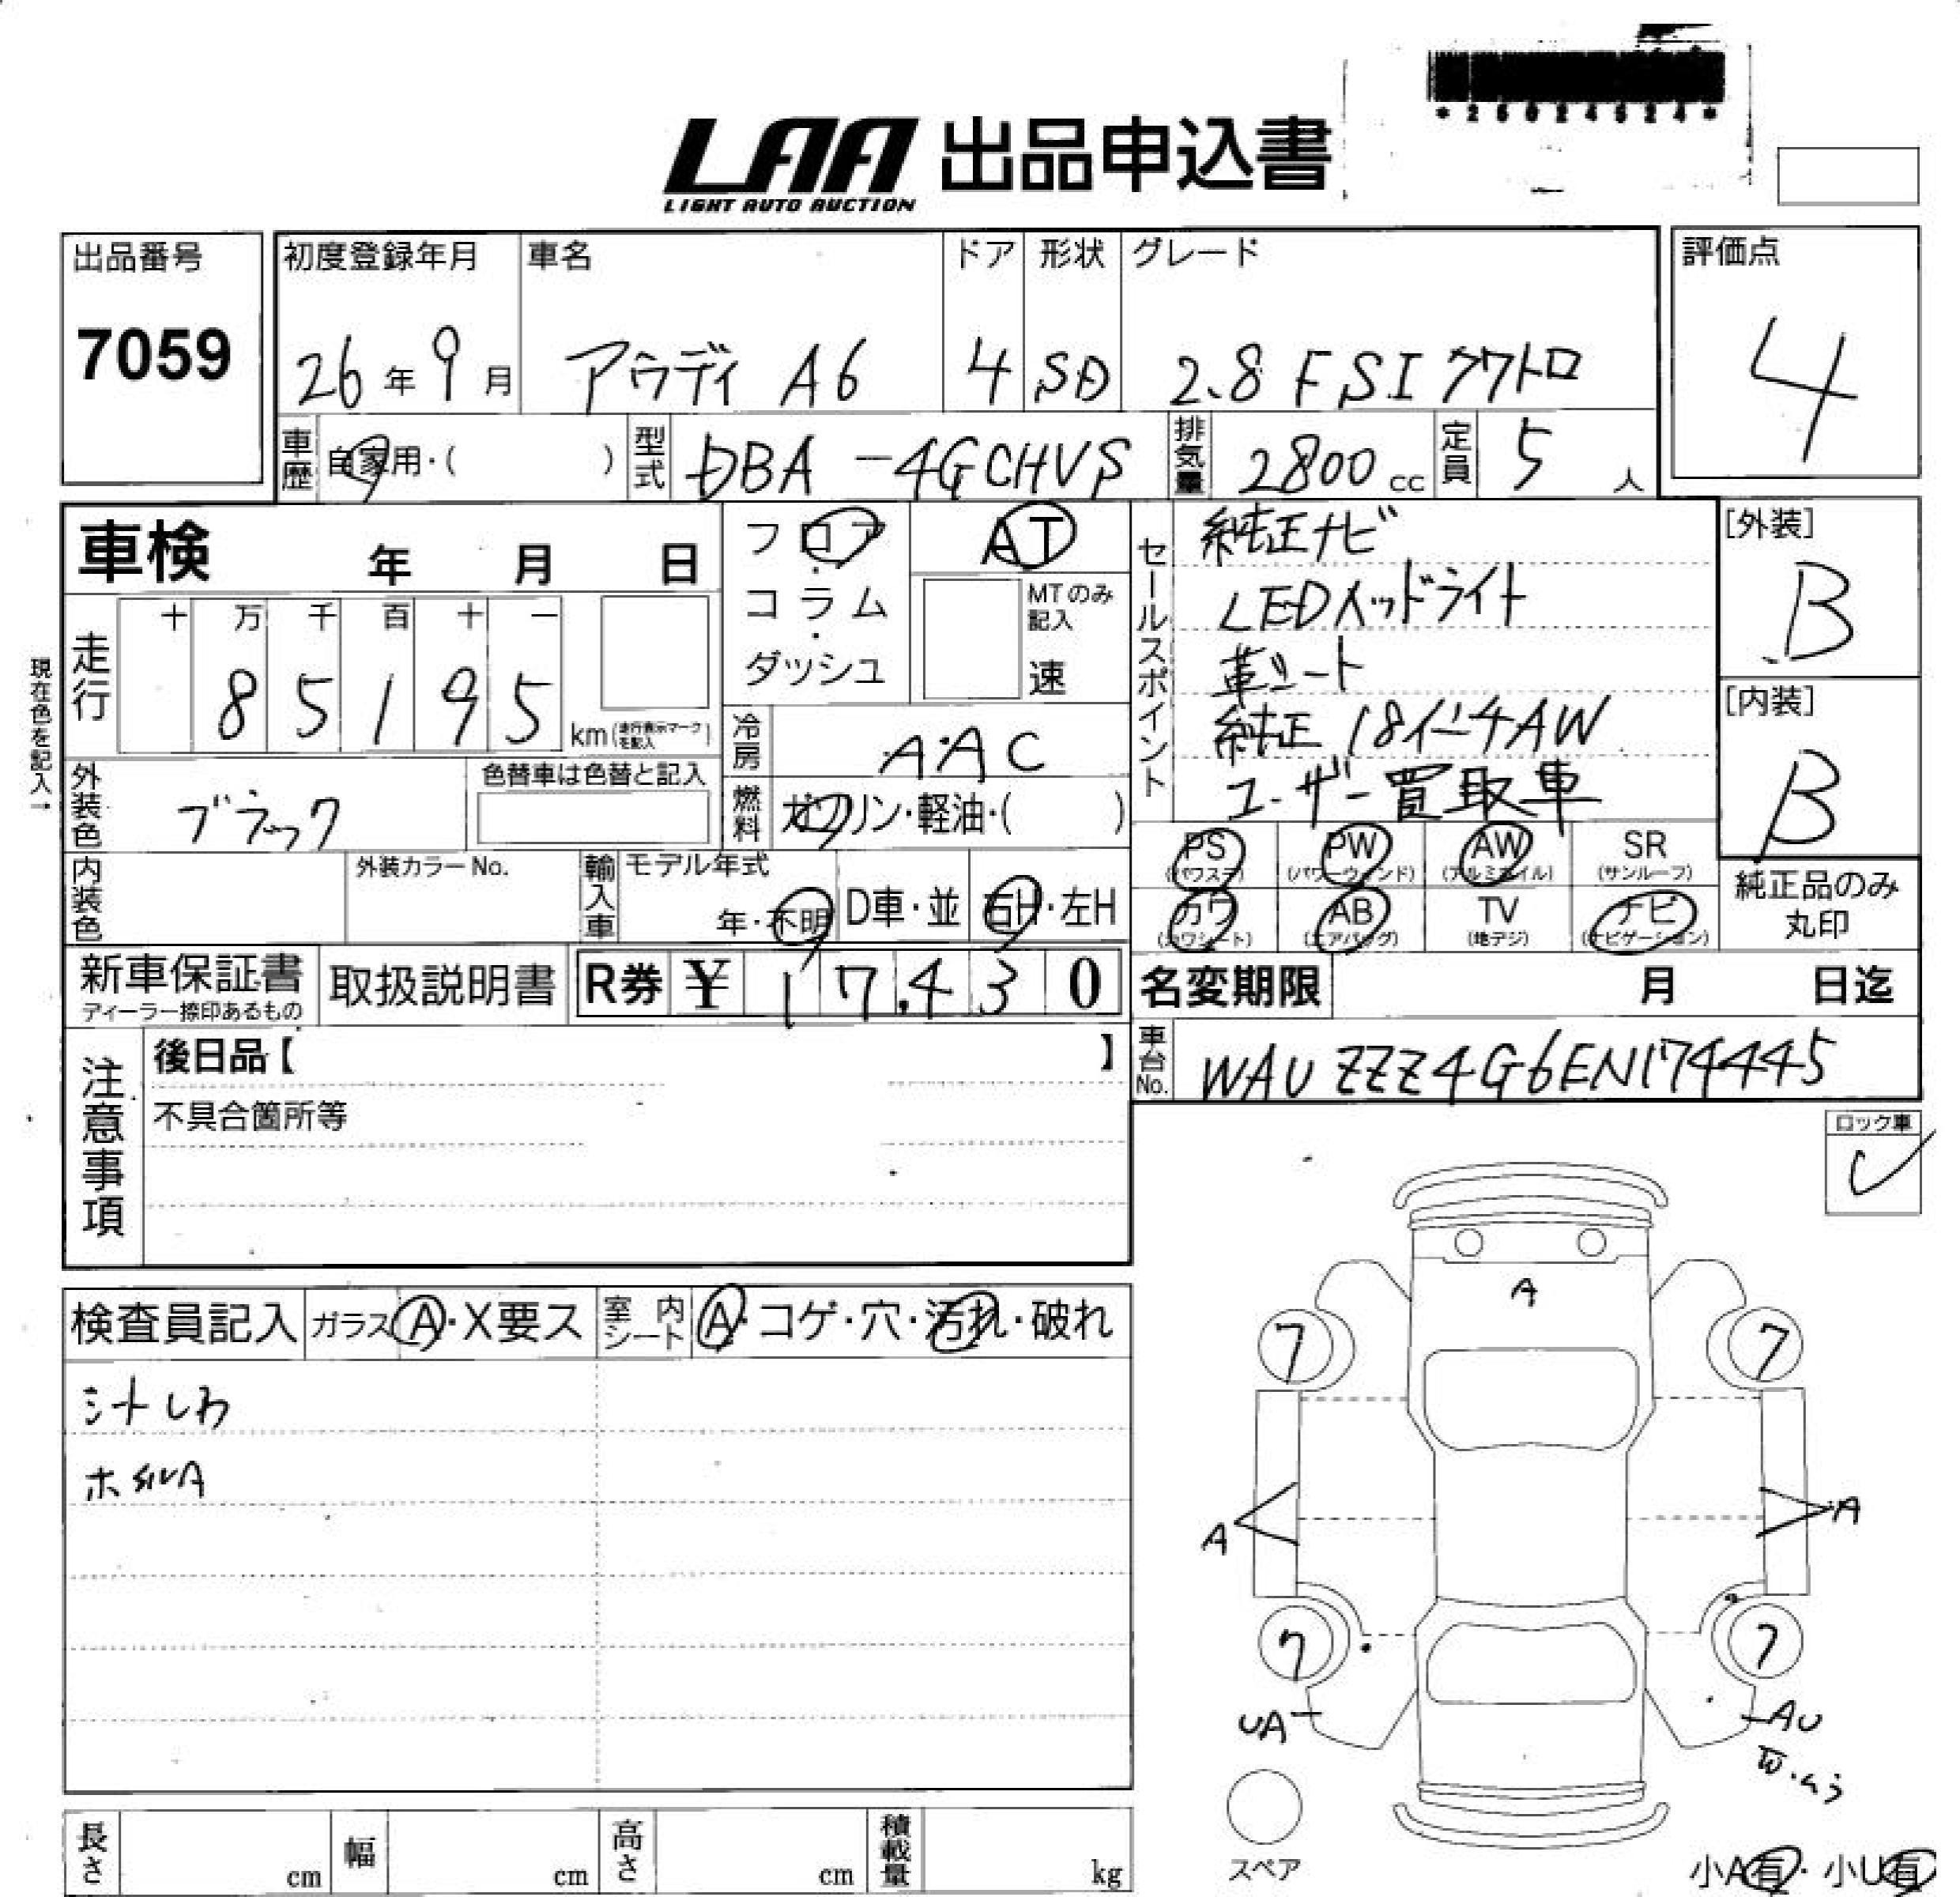 *26024524*
LAA 出品申込書
LIGHT AUTO AUCTION
出品番号
7059
初度登録年月
26年9月
車名
アウディ A6
ドア
4
形状
SD
グレード
2.8 FSI クワトロ
評価点
4
車歴 自家用・( )
型式 DBA-4GCHVS
排気量 2800cc
定員 5人
車検 年 月 日
現在色を記入→
走行
十 万 千 百 十 一
8 5 1 9 5
km(走行表示マークを記入)
フロア・コラム・ダッシュ
AT
MTのみ記入
速
冷房 AAC
燃料 ガソリン・軽油・( )
セールスポイント
純正ナビ
LEDヘッドライト
革シート
純正18インチAW
ユーザー買取車
[外装]
B
[内装]
B
外装色 ブラック
色替車は色替と記入
内装色
外装カラーNo.
輸入車
モデル年式
年・不明
D車・並
右H・左H
PS
(パワステ)
PW
(パワーウィンド)
AW
(アルミホイル)
SR
(サンルーフ)
カワ
(カワシート)
AB
(エアバッグ)
TV
(地デジ)
ナビ
(ナビゲーション)
純正品のみ
丸印
新車保証書
ディーラー捺印あるもの
取扱説明書
R券 ¥ 17,430
名変期限 月 日迄
車台No. WAUZZZ4G6EN174445
注意事項
後日品【 】
不具合箇所等
ロック車
検査員記入
ガラス A・X要ス
室内シート A・コゲ・穴・汚れ・破れ
シートしわ
A
7
7
A
A
7
7
UA
AU
スペア
小A有・小U有
長さ cm
幅 cm
高さ cm
積載量 kg